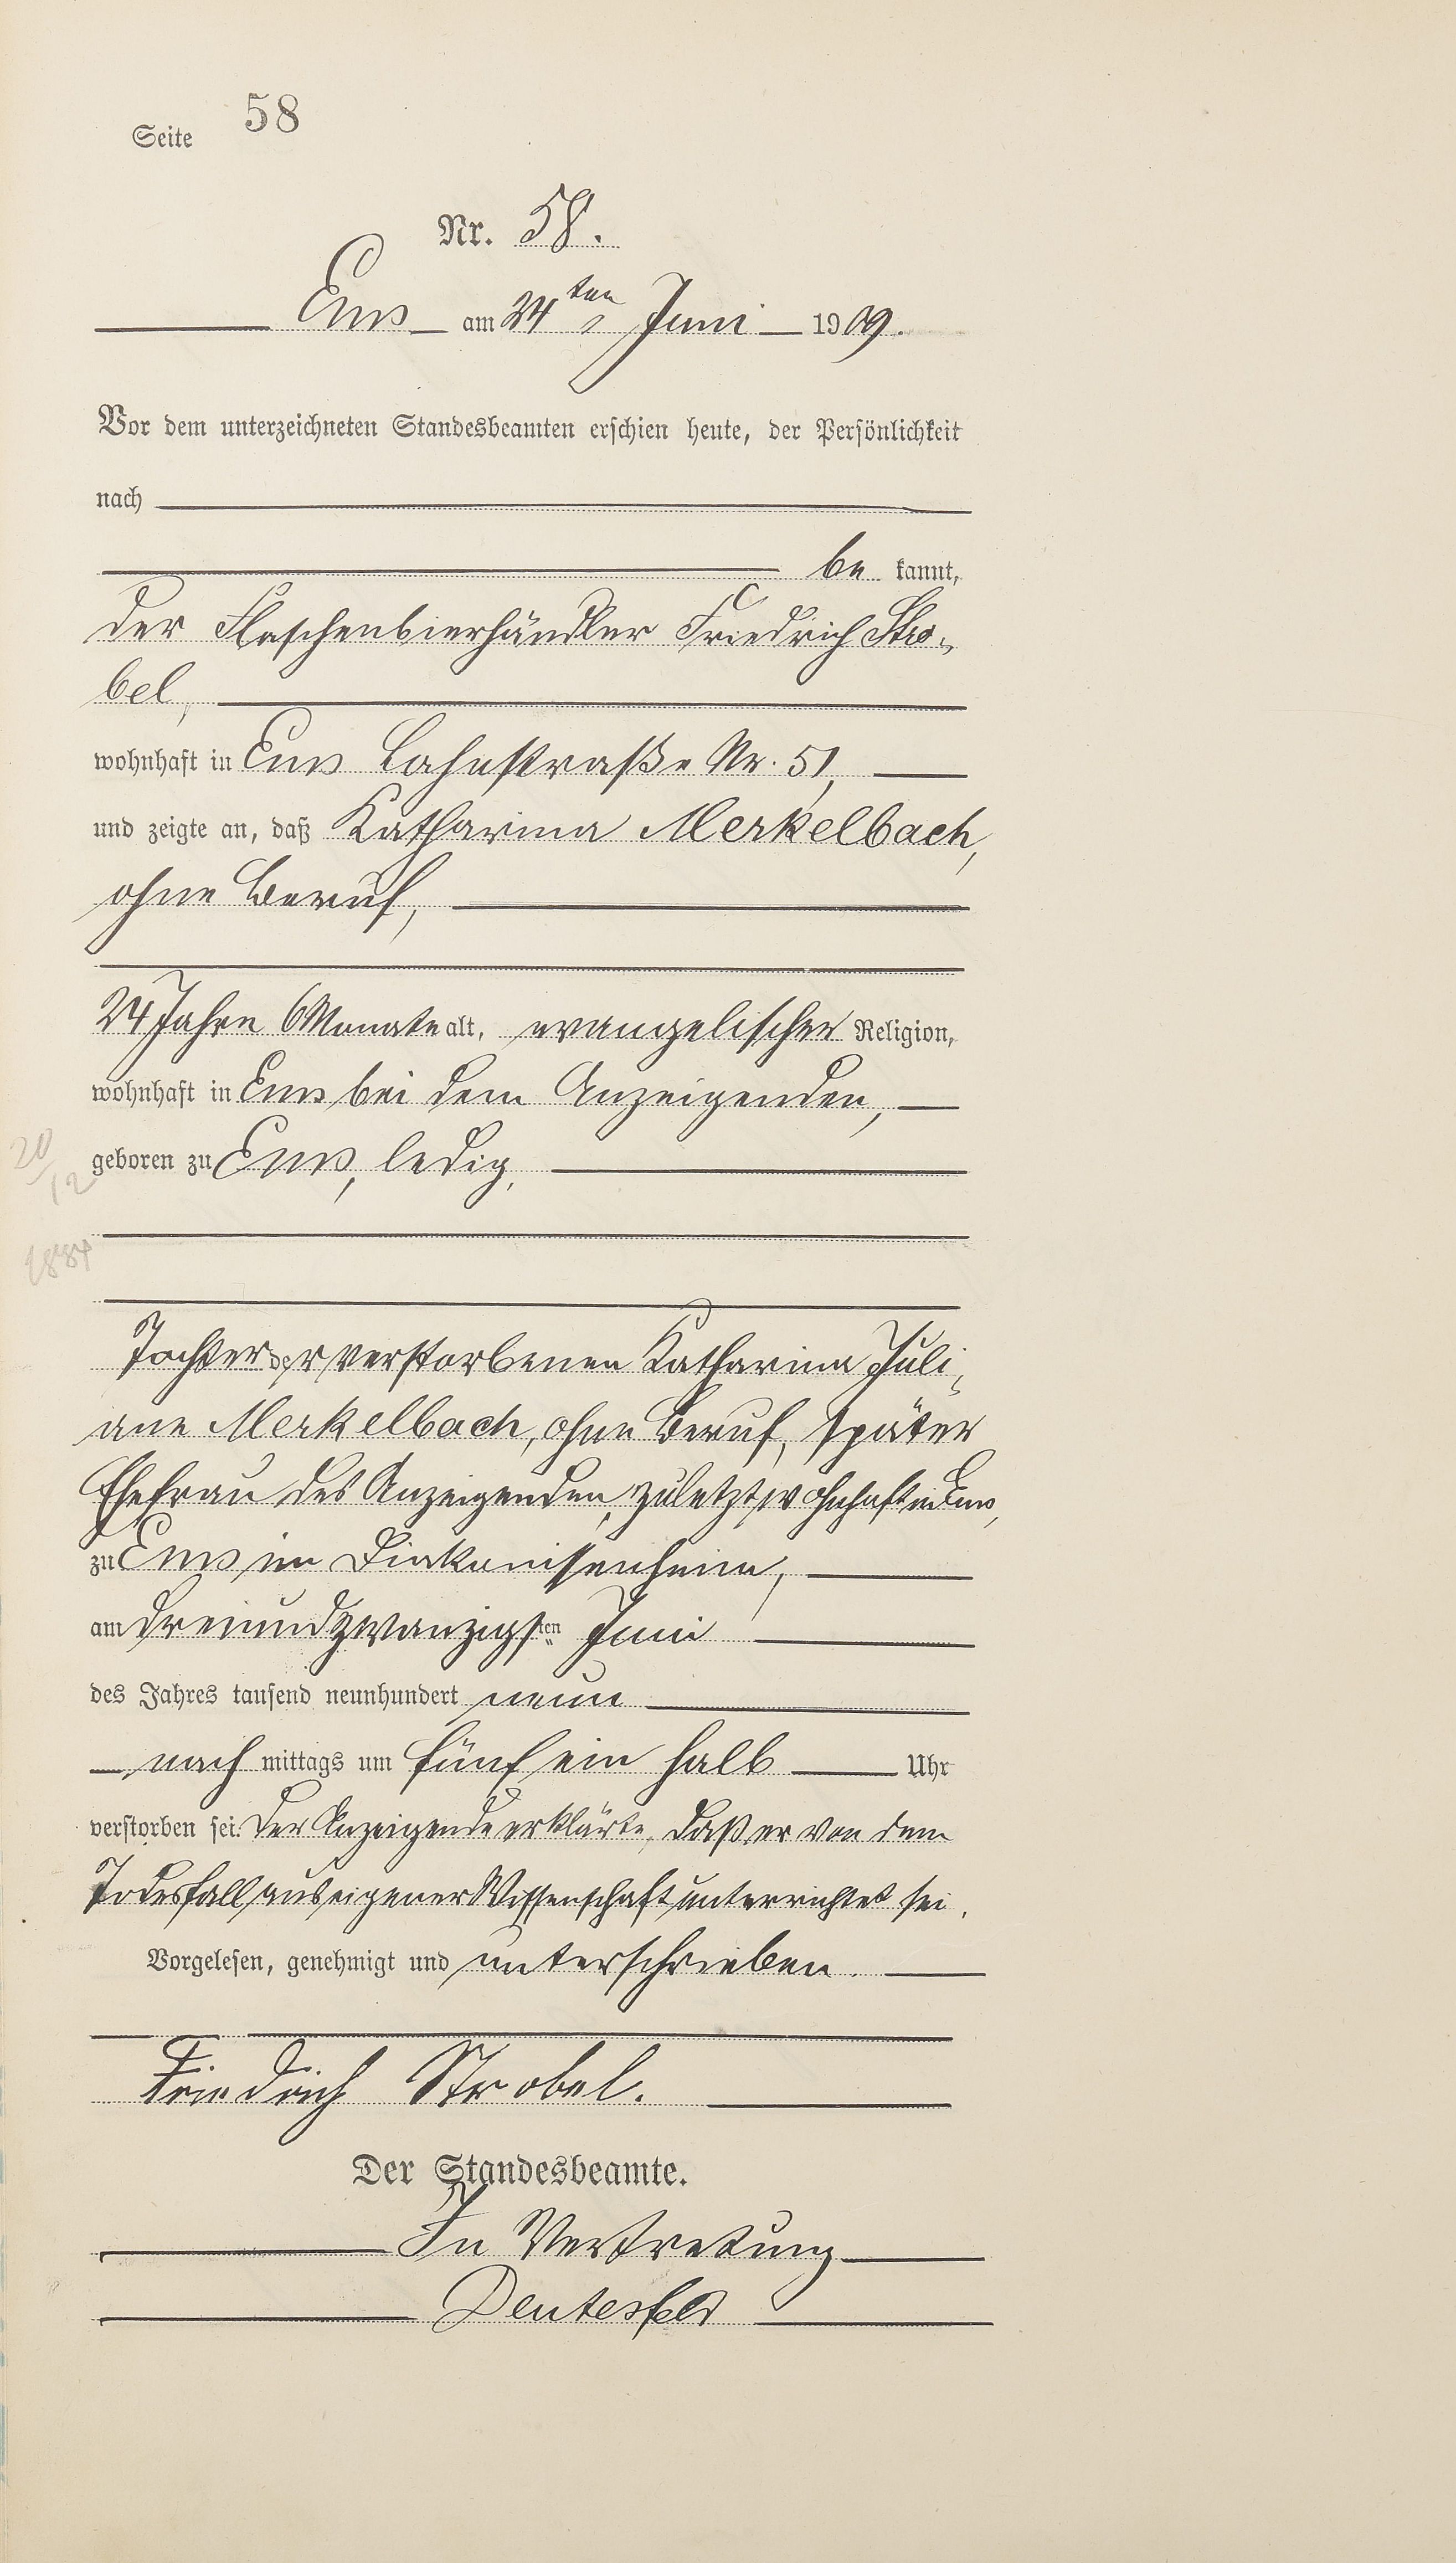 Seite 58
Nr. 58.
Ems am 24ten Juni 1909.
Vor dem unterzeichneten Standesbeamten erschien heute, der Persönlichkeit
nach
be kannt,
der Flaschenbierhändler Friedrich Stro-
bel,
wohnhaft in Ems Lahnstraße Nr. 51,
und zeigte an, daß Katharina Merkelbach,
ohne Beruf,
24 Jahre 6 Monate alt, evangelischer Religion,
wohnhaft in Ems bei dem Anzeigenden,
20/12
geboren zu Ems, ledig,
1884
Tochter der verstorbenen Katharina Juli-
ane Merkelbach, ohne Beruf, später
Ehefrau des Anzeigenden, zuletzt wohnhaft in Ems,
zu Ems im Diakonissenheim,
am dreiundzwanzigsten Juni
des Jahres tausend neunhundert neun
nach mittags um fünf ein halb Uhr
verstorben sei. Der Anzeigende erklärte, daß er von dem
Todesfall aus eigener Wissenschaft unterrichtet sei.
Vorgelesen, genehmigt und unterschrieben.
Friedrich Strobel.
Der Standesbeamte.
In Vertretung